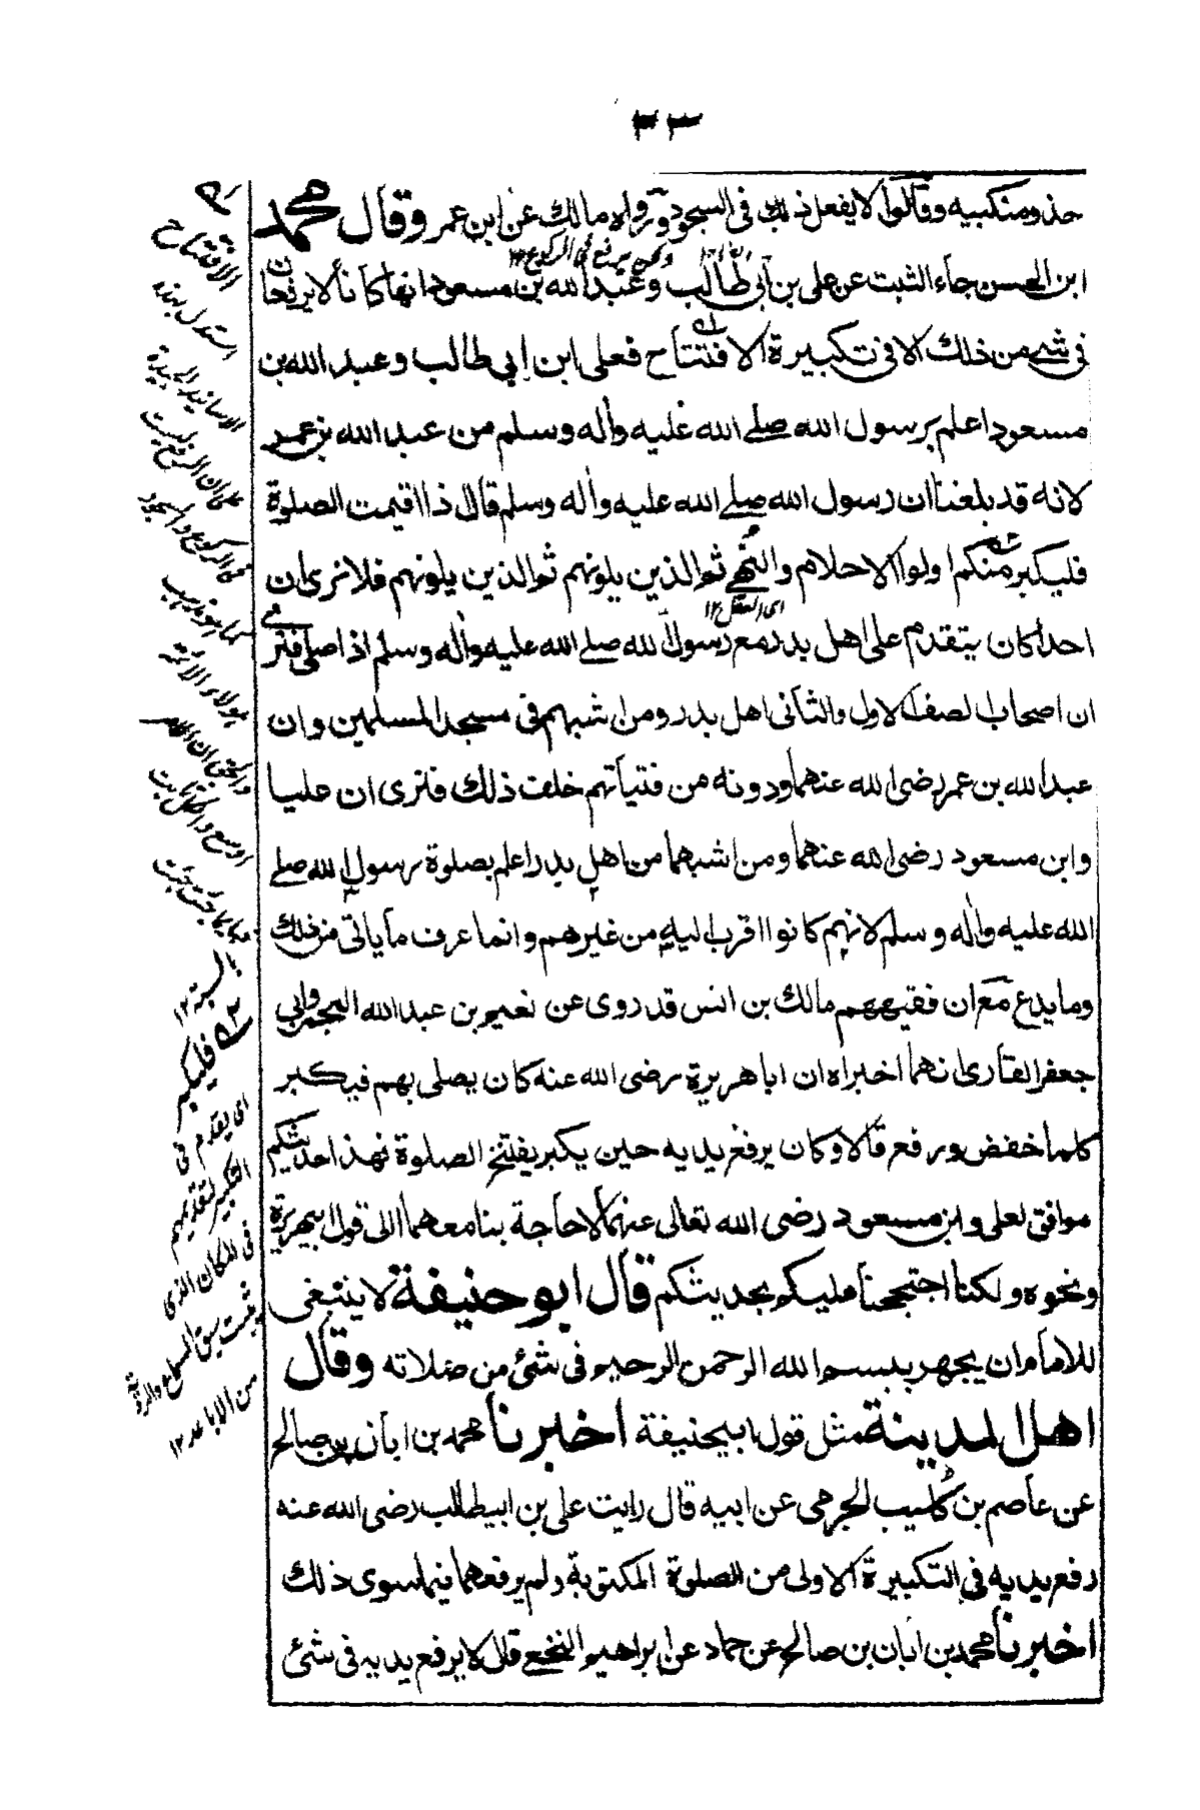 ٣٣
حذو منكبيه وقالوا لا يفعل ذلك فى السجود ورواه مالك عن ابن عمر وقال محمد
ابن الحسن جاء الثبت عن على بن ابى طالب وعبد الله بن مسعود انهما كانا لا يرفعان
فى شئ من ذلك الا فى تكبيرة الافتتاح فعلى ابن ابي طالب وعبد الله بن
مسعود اعلم برسول الله صلے الله عليه واٰله وسلم من عبد الله بن عمر
لانه قد بلغنا ان رسول الله صلے الله عليه واٰله وسلم قال اذا اقيمت الصلوة
فليكبر منكم اولوا الاحلام والنهے ثم الذين يلونهم ثم الذين يلونهم فلا نرى ان
اى العقل ١٢
احدا كان يتقدم على اهل بدر مع رسول الله صلے الله عليه واٰله وسلم اذا صلى فنرى
ان اصحاب الصف الاول والثانى اهل بدر ومن اشبههم فى مسجد المسلمين وان
عبد الله بن عمر رضى الله عنهما ودونه من فتيانهم خلف ذلك فنرى ان عليا
وابن مسعود رضى الله عنهما ومن اشبههما من اهل بدر اعلم بصلوة رسول الله صلے
الله عليه واٰله وسلم لانهم كانوا اقرب اليه من غيرهم وانما عرف ما ياتى من ذلك
وما يدع مع ان فقيههم مالك بن انس قد روى عن نعيم بن عبد الله المجمر وابى
جعفر القارى انهما اخبراه ان ابا هريرة رضى الله عنه كان يصلى بهم فيكبر
كلما خفض ورفع قالا وكان يرفع يديه حين يكبر يفتتح الصلوة فهذا حديثكم
موافق لعلى وابن مسعود رضى الله تعالى عنهما لا حاجة بنا معهما الى قول ابيهريرة
ونحوه ولكنا احتججنا عليكم بحديثكم قال ابو حنيفة لا ينبغى
للامام ان يجهر ببسم الله الرحمن الرحيم فى شئ من صلاته وقال
اهل المدينة مثل قول ابيحنيفة اخبرنا محمد بن ابان بن صالح
عن عاصم بن كليب الجرمى عن ابيه قال رايت على بن ابيطالب رضى الله عنه
رفع يديه فى التكبيرة الاولى من الصلوة المكتوبة ولم يرفعهما فيما سوى ذلك
اخبرنا محمد بن ابان بن صالح عن حماد عن ابراهيم النخعى قال لا يرفع يديه فى شئ
الافتتاح
استدل بهذه
الاسانيد الجيدة
على ان الرفع ليست
فى الركوع والسجود
كما هو مذهب
هولاء الائمة
بالسنة ١٢
فليكبر
اى يقدم فى
التكبير لتقديمهم
فى المكان الذى
من الاباعد ١٢